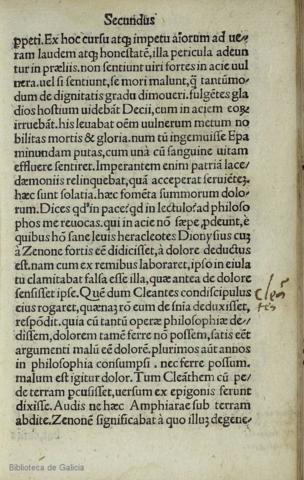 Secundus
ppeti. Ex hoc cursu atq; impetu aĩorum ad ue/
ram laudem atq; honestatẽ, illa pericula adeun
tur in præliis. non sentiunt uiri fortes in acie uul
nera. uel si sentiunt, se mori malunt, q̃ tantũmo/
dum de dignitatis gradu dimoueri. fulgẽtes gla
dios hostium uidebãt Decii, cum in aciem eoꝝ
irruebãt. his leuabat oẽm uulnerum metum no
bilitas mortis & gloria. num tũ ingemuisse Epa
minundam putas, cum unà cũ sanguine uitam
effluere sentiret. Imperantem enim patriã lace/
dæmoniis relinquebat, quã acceperat seruiẽteʒ.
hæc sunt solatia. hæc fomẽta summorum dolo/
rum. Dices qd'in pace: qd in lectulo: ad philoso
phos me reuocas. qui in acie nõ sæpe ꝓdeunt, è
quibus hõ sane leuis heracleotes Dionysius cũ
à Zenone fortis eẽ didicisset, à dolore deductus
est. nam cum ex remibus laboraret, ipso in eiula
tu clamitabat falsa esse illa, quæ antea de dolore
sensisset ipse. Quẽ dum Cleantes condiscipulus
eius rogaret, quænaʒ rõ eum de snĩa deduxisset,
respõdit. quia cũ tantũ operæ philosophiæ de/
dissem, dolorem tamẽ ferre nõ possem, satis eẽt
argumenti malũ eẽ dolorẽ. plurimos aũt annos
in philosophia consumpsi. nec ferre possum.
malum est igitur dolor. Tum Cleãthem cũ pe/
de terram pcusisset, uersum ex epigonis ferunt
dixisse. Audis ne hæc Amphiarae sub terram
abdite. Zenonẽ significabãt à quo illuʒ degene/
Biblioteca de Galicia